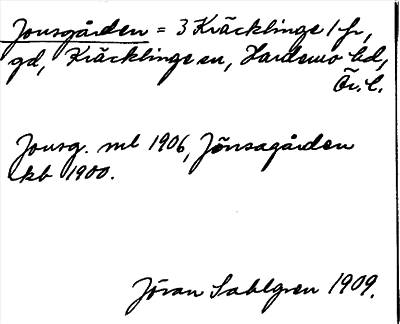 Jonsgården = 3 Kräcklinge 1 fr,
gd, Kräcklinge sn, Hardemo hd,
Ör. l.
Jonsg. ml 1906, Jönsagården
kb 1900.
Jöran Sahlgren 1909.